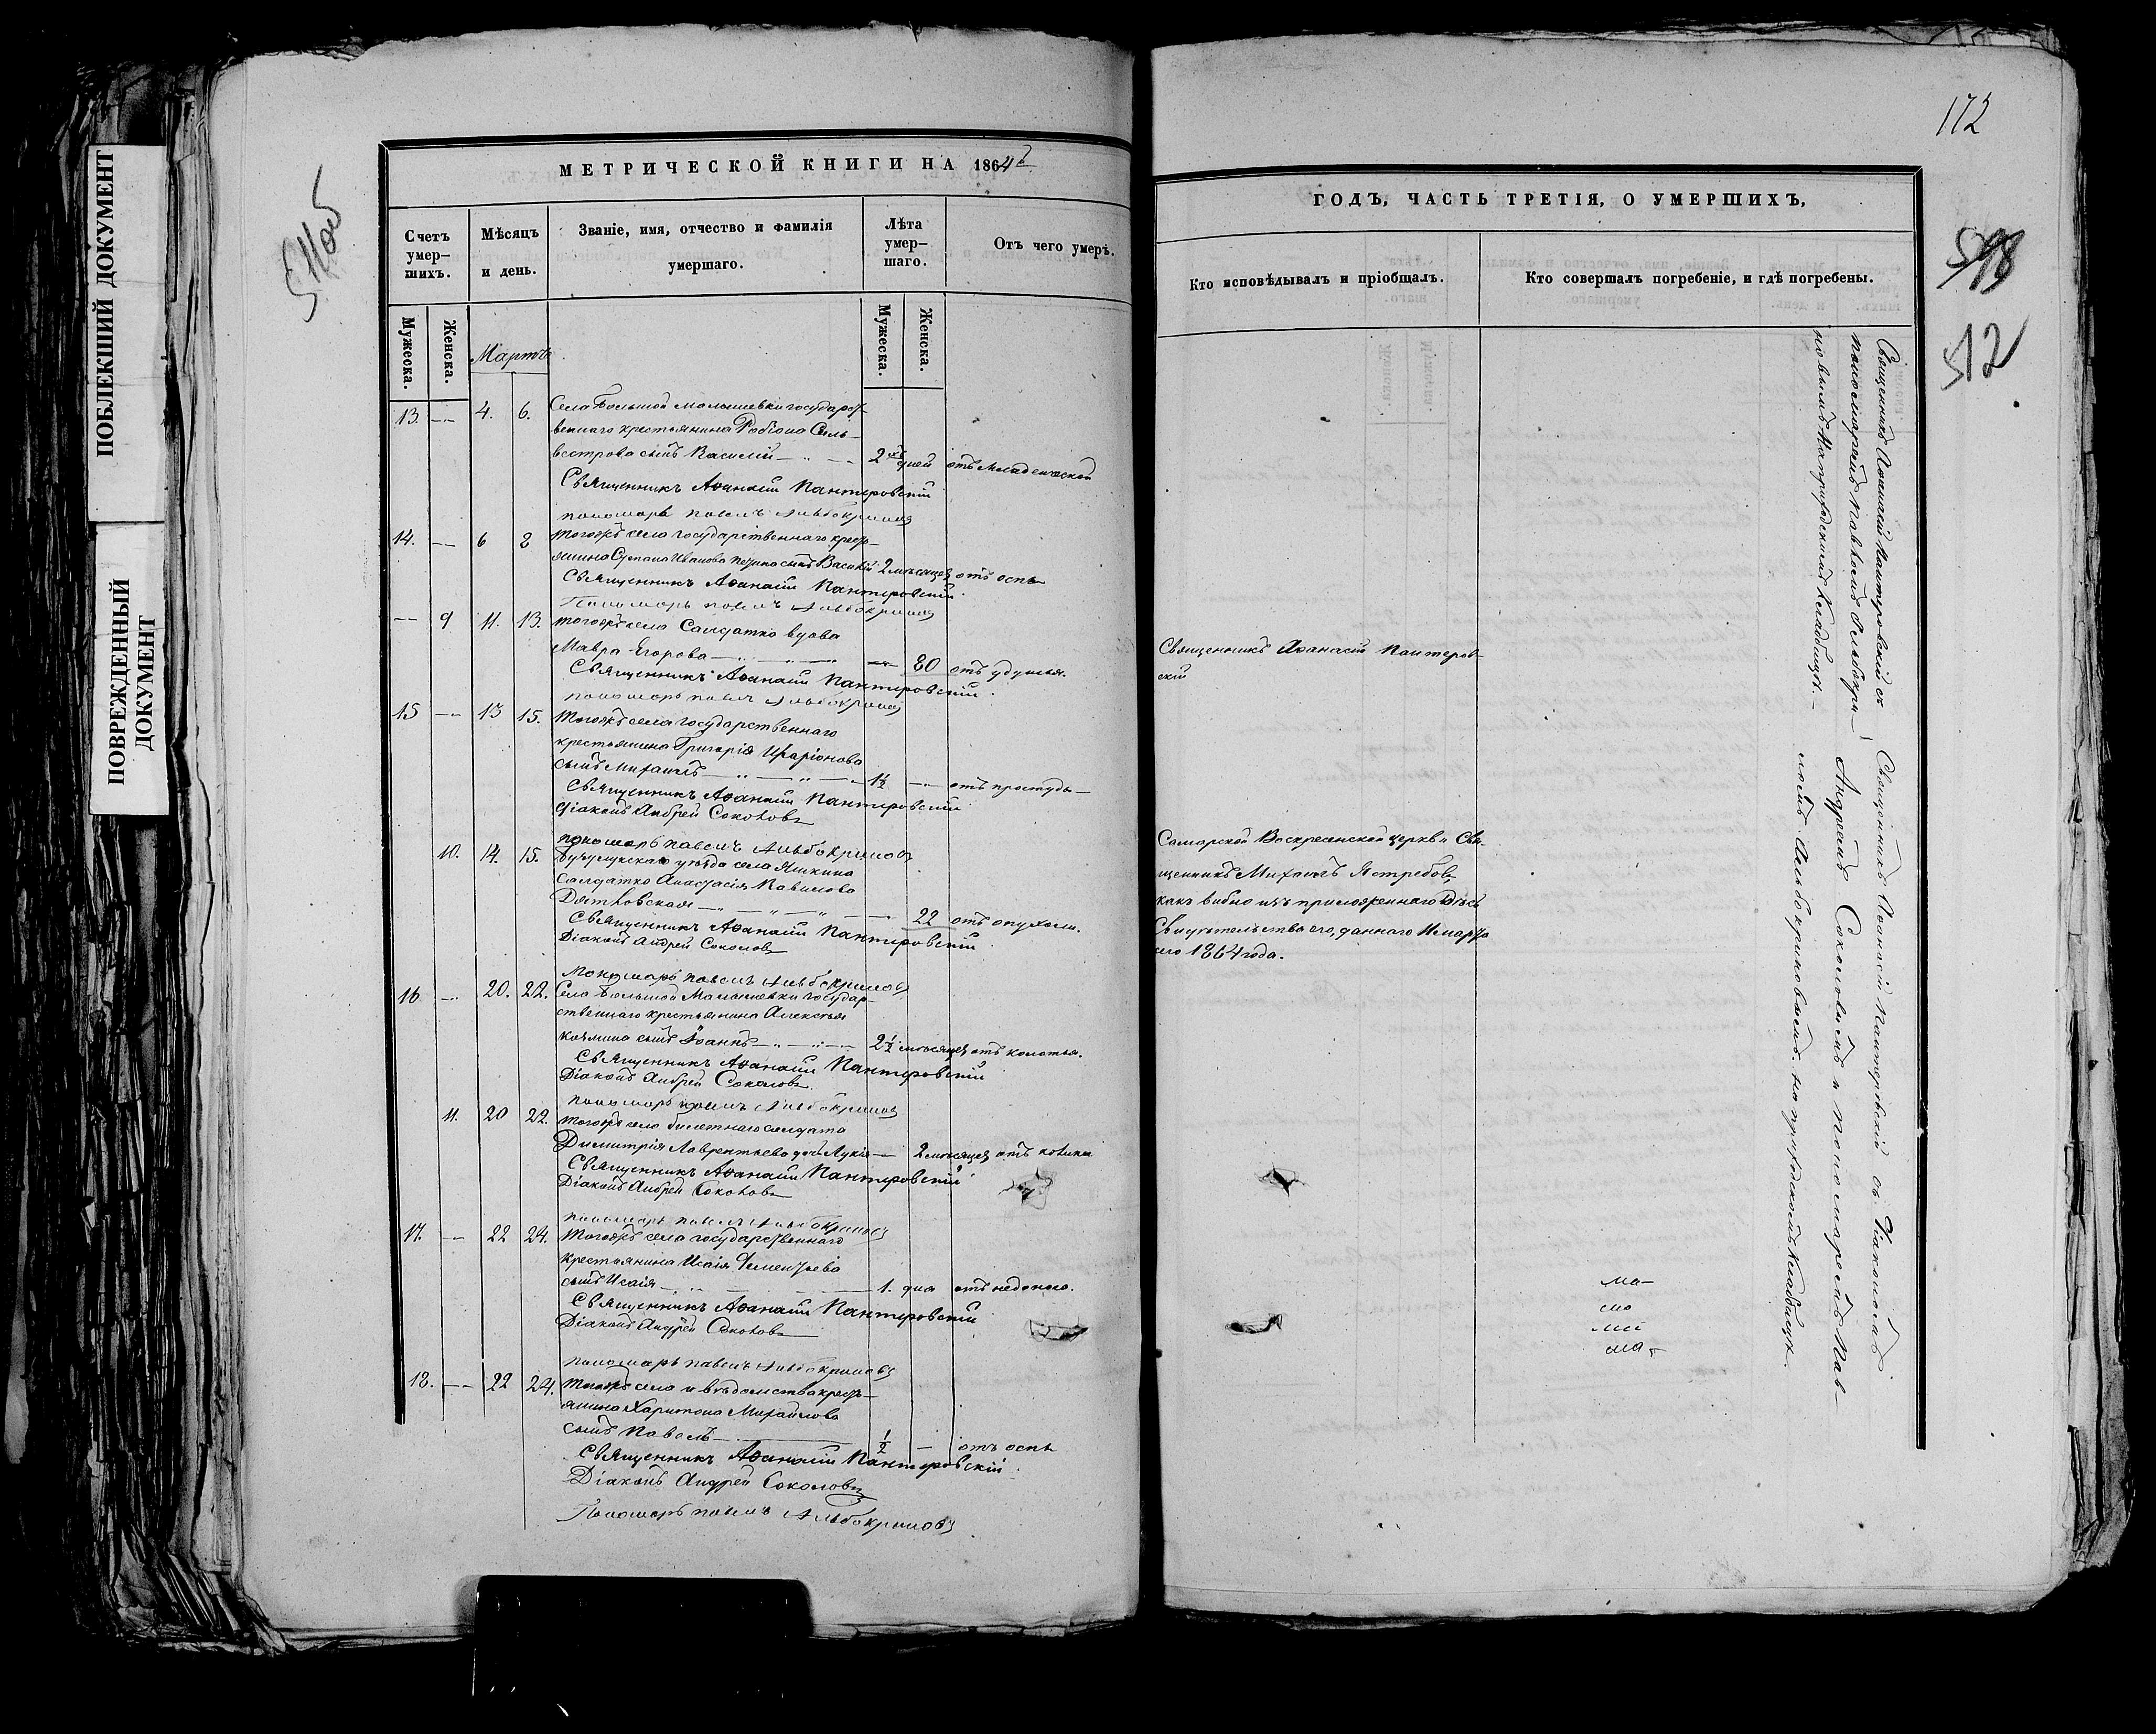 ПОБЛЕКШИЙ ДОКУМЕНТ
ПОВРЕЖДЕННЫЙ
ДОКУМЕНТ
511об
МЕТРИЧЕСКОЙ КНИГИ НА 1864й
Счетъ умер-шихъ.
Мѣсяцъ и день.
Званіе, имя, отчество и фамилія умершаго.
Лѣта умер-шаго.
Отъ чего умеръ.
Мужеска.
Женска.
Мартъ
Мужеска.
Женска.
13. — 4. 6. Села Большой Малышевки государст-
веннаго крестьянина Родіона Силь-
вестрова сынъ Василій — 2хъ дней отъ младенческой
Священникъ Аѳанасій Пантеровскій
пономарь павелъ Альбокриновъ
14. — 6 8 тогожъ села государственнаго кресть-
янина Степана Иванова сынъ Василій 2 мѣсяцев отъ оспы
Священникъ Аѳанасій Пантеровскій
Пономарь павелъ Альбокриновъ
— 9 11. 13. тогожъ села Салдатка вдова
Мавра Егорова — 80 отъ удушья.
Священникъ Аѳанасій Пантеровскій
пономарь павелъ Альбокриновъ
15 — 13 15. тогожъ села государственнаго
крестьянина Григорія Иларіонова
сынъ Михаилъ — 1½ — отъ простуды
Священникъ Аѳанасій Пантеровскій
Діаконъ Андрей Соколовъ
пономарь павелъ Альбокриновъ
10. 14. 15. Бузулукскаго уѣзда села Яшкина
Салдатка Анастасія Вавилова
Дятловская — 22 отъ опухоли.
Священникъ Аѳанасій Пантеровскій
Діаконъ Андрей Соколовъ
Пономарь павелъ Альбокриновъ
16 — 20. 22. Села Большой Малышевки государ-
ственнаго крестьянина Алексѣя
сынъ Іоаннъ — 2½ мѣсяцев отъ колотья.
Священникъ Аѳанасій Пантеровскій
Діаконъ Андрей Соколовъ.
пономарь павелъ Альбокриновъ
11. 20 22. тогожъ села билетнаго солдата
Димитрія Лаврентьева дочь — 2 мѣсяцев отъ
Священникъ Аѳанасій Пантеровскій
Діаконъ Андрей Соколовъ
пономарь павелъ Альбокриновъ
17. — 22 24. Тогожъ села государственнаго
крестьянина Исаія
сынъ Исаія — 1. дня отъ
Священникъ Аѳанасій Пантеровскій
Діаконъ Андрей Соколовъ
пономарь павелъ Альбокриновъ
18. — 22 24. Тогожъ села и вѣдомства кресть-
янина Харитона Михайлова
сынъ Павелъ — ½ — отъ оспы
Священникъ Аѳанасій Пантеровскій
Діаконъ Андрей Соколовъ
Пономарь павелъ Альбокриновъ
172
512
ГОДЪ, ЧАСТЬ ТРЕТІЯ, О УМЕРШИХЪ,
Кто исповѣдывалъ и пріобщалъ.
Кто совершалъ погребеніе, и гдѣ погребены.
Священникъ Аѳанасій Пантеров-
скій
Самарской Воскресенской церкви Свя-
щенникъ Михаилъ Ястребовъ,
какъ видно изъ приложеннаго здѣсь
Свидѣтельства его, даннаго
1864 года.
Священникъ Аѳанасій Пантеровскій съ
пономаремъ Павломъ Альбокри-
новымъ на приходскомъ кладбищѣ.
Священникъ Аѳанасій Пантеровскій съ Діакономъ
Андреемъ Соколовымъ и пономаремъ Пав-
ломъ Альбокриновымъ. на приходскомъ кладбищѣ.